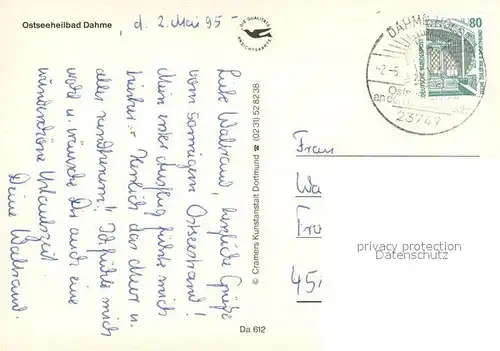 Ostseeheilbad Dahme
d. 2. Mai 95 -
DIE QUALITÄTS
ANSICHTSKARTE
Liebe Waltraud, herzliche Grüße
vom sonnigen Ostseestrand!
Mein erster Ausflug führte mich
hierher. Herrlich das Meer u.
alles rundherum!! Ich fühle mich
wohl u. wünsche Dir auch eine
wunderschöne Urlaubszeit
Deine Waltraud.
© Cramers Kunstanstalt Dortmund ☎ (0231) 528238
Da 612
DAHME, HOLST
-2.-5.
23747
80
DEUTSCHE BUNDESPOST
Frau
Wa
Fro
45
privacy protection
Datenschutz